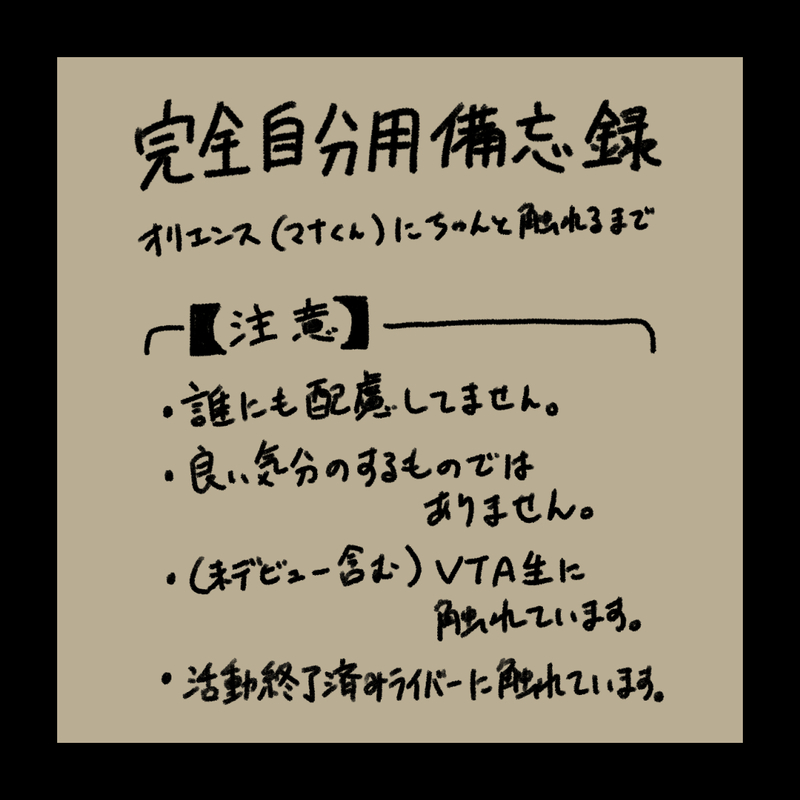 完全自分用備忘録
オリエンス(マナくん)にちゃんと触れるまで
【注意】
・誰にも配慮してません。
・良い気分のするものでは
ありません。
・(未デビュー含む)VTA生に
触れています。
・活動終了済みライバーに触れています。